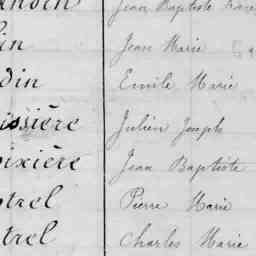 Jean Baptiste
in Jean Marie
din Emile Marie
issière Julien Joseph
oixière Jean Baptiste
trel Pierre Marie
trel Charles Marie